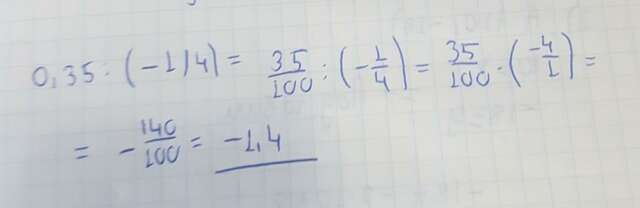 0,35 : (-1/4) = 35/100 : (-1/4) = 35/100 · (-4/1) =
= -140/100 = -1,4